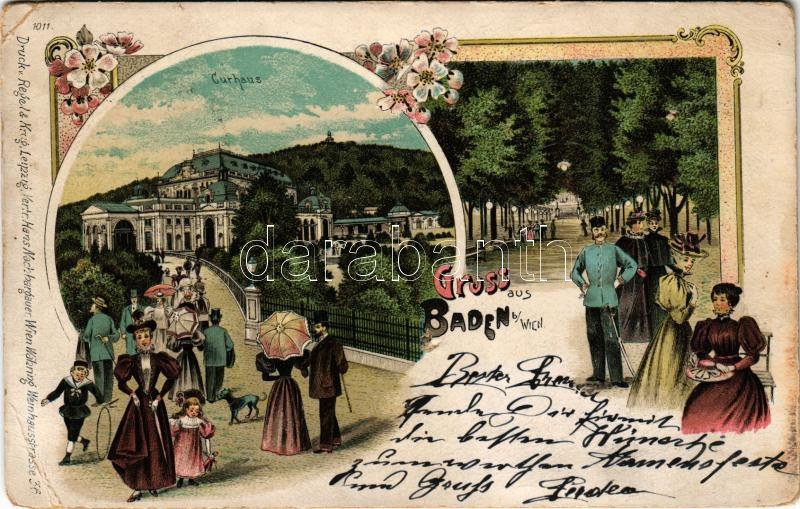 1011.
Druck v. Regel & Krug, Leipzig. Vertr. Hans Nachbargauer Wien Währing Weinhausstrasse 36.
Curhaus
darabanth
Gruss aus
BADEN b/ WIEN.
Bester
Sende Dir hiermit
die besten Wünsche
zum werthen Namensfeste
und Gruß